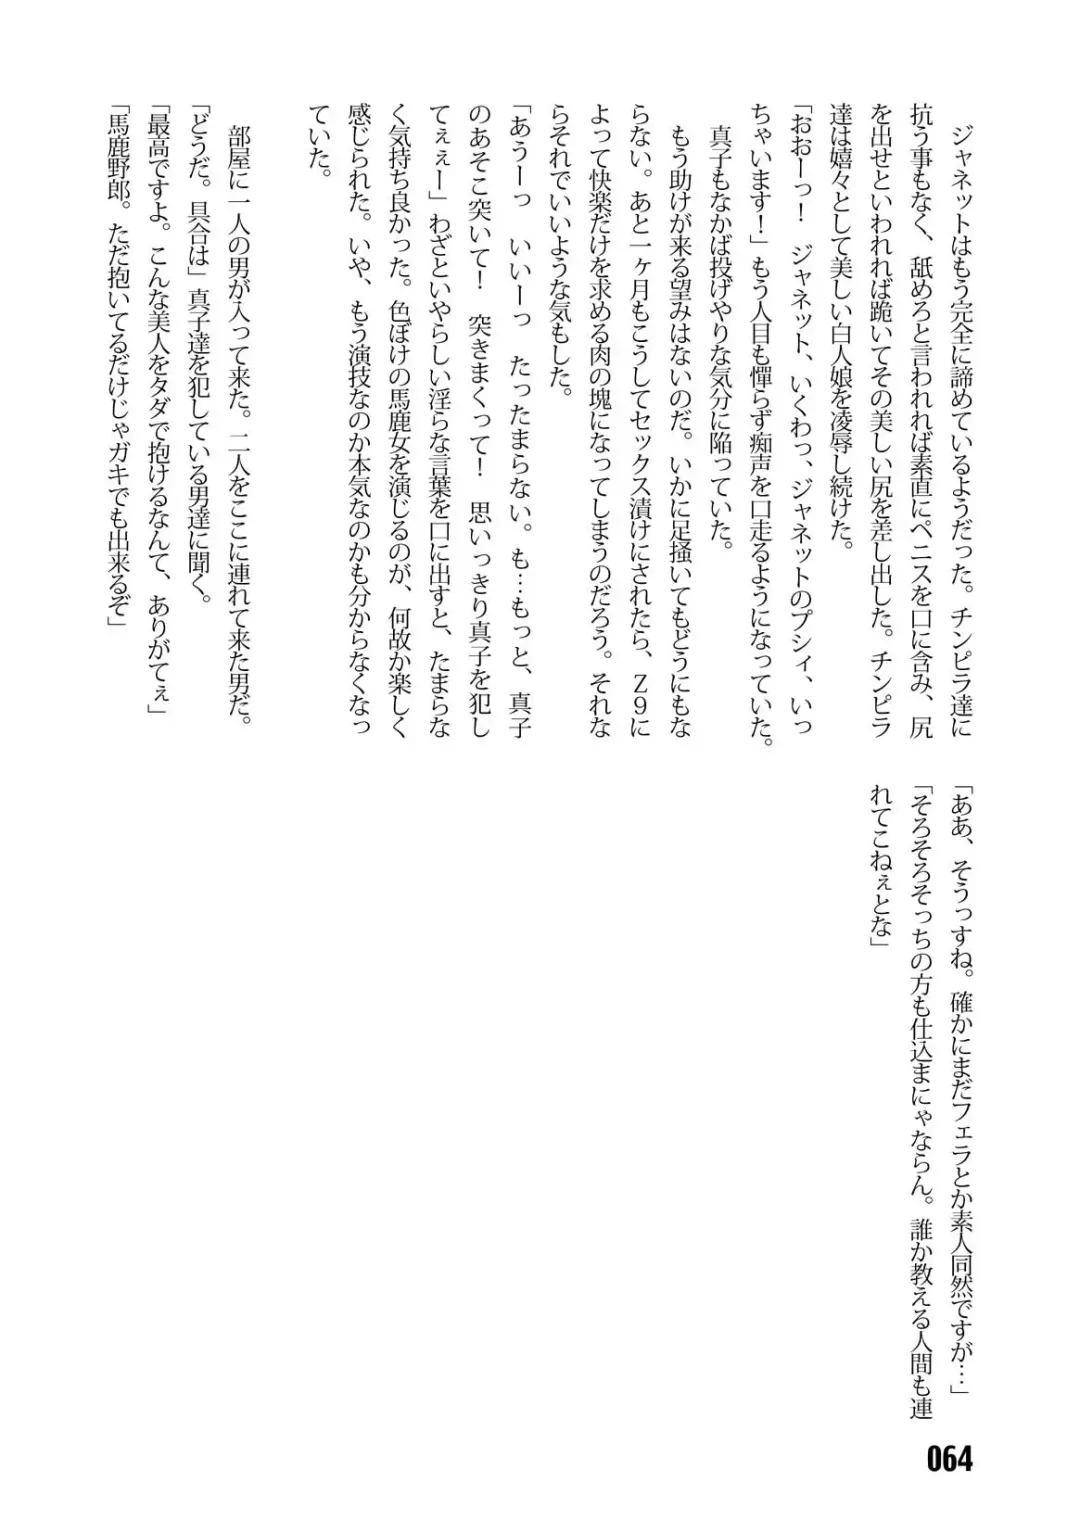 ジャネットはもう完全に諦めているようだった。チンピラ達に
抗う事もなく、舐めろと言われれば素直にペニスを口に含み、尻
を出せといわれれば跪いてその美しい尻を差し出した。チンピラ
達は嬉々として美しい白人娘を凌辱し続けた。
「おおーっ！　ジャネット、いくわっ、ジャネットのプシィ、いっ
ちゃいます！」もう人目も憚らず痴声を口走るようになっていた。
　真子もなかば投げやりな気分に陥っていた。
　もう助けが来る望みはないのだ。いかに足掻いてもどうにもな
らない。あと一ヶ月もこうしてセックス漬けにされたら、Ｚ９に
よって快楽だけを求める肉の塊になってしまうのだろう。それな
らそれでいいような気もした。
「あうーっ　いいーっ　たったまらない。も…もっと、真子
のあそこ突いて！　突きまくって！　思いっきり真子を犯し
てぇぇー」わざといやらしい淫らな言葉を口に出すと、たまらな
く気持ち良かった。色ぼけの馬鹿女を演じるのが、何故か楽しく
感じられた。いや、もう演技なのか本気なのかも分からなくなっ
ていた。
　部屋に一人の男が入って来た。二人をここに連れて来た男だ。
「どうだ。具合は」真子達を犯している男達に聞く。
「最高ですよ。こんな美人をタダで抱けるなんて、ありがてぇ」
「馬鹿野郎。ただ抱いてるだけじゃガキでも出来るぞ」
「ああ、そうっすね。確かにまだフェラとか素人同然ですが…」
「そろそろそっちの方も仕込まにゃならん。誰か教える人間も連
れてこねぇとな」
064